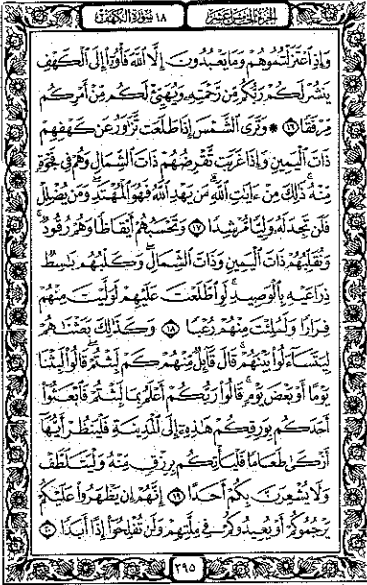 الجزء الخامس عشر
١٨ سورة الكهف
وَإِذِ ٱعۡتَزَلۡتُمُوهُمۡ وَمَا يَعۡبُدُونَ إِلَّا ٱللَّهَ فَأۡوُۥٓاْ إِلَى ٱلۡكَهۡفِ
يَنشُرۡ لَكُمۡ رَبُّكُم مِّن رَّحۡمَتِهِۦ وَيُهَيِّئۡ لَكُم مِّنۡ أَمۡرِكُم
مِّرۡفَقٗا ١٦ ۞ وَتَرَى ٱلشَّمۡسَ إِذَا طَلَعَت تَّزَٰوَرُ عَن كَهۡفِهِمۡ
ذَاتَ ٱلۡيَمِينِ وَإِذَا غَرَبَت تَّقۡرِضُهُمۡ ذَاتَ ٱلشِّمَالِ وَهُمۡ فِي فَجۡوَةٖ
مِّنۡهُۚ ذَٰلِكَ مِنۡ ءَايَٰتِ ٱللَّهِۗ مَن يَهۡدِ ٱللَّهُ فَهُوَ ٱلۡمُهۡتَدِۖ وَمَن يُضۡلِلۡ
فَلَن تَجِدَ لَهُۥ وَلِيّٗا مُّرۡشِدٗا ١٧ وَتَحۡسَبُهُمۡ أَيۡقَاظٗا وَهُمۡ رُقُودٞۚ
وَنُقَلِّبُهُمۡ ذَاتَ ٱلۡيَمِينِ وَذَاتَ ٱلشِّمَالِۖ وَكَلۡبُهُم بَٰسِطٞ
ذِرَاعَيۡهِ بِٱلۡوَصِيدِۚ لَوِ ٱطَّلَعۡتَ عَلَيۡهِمۡ لَوَلَّيۡتَ مِنۡهُمۡ
فِرَارٗا وَلَمُلِئۡتَ مِنۡهُمۡ رُعۡبٗا ١٨ وَكَذَٰلِكَ بَعَثۡنَٰهُمۡ
لِيَتَسَآءَلُواْ بَيۡنَهُمۡۚ قَالَ قَآئِلٞ مِّنۡهُمۡ كَمۡ لَبِثۡتُمۡۖ قَالُواْ لَبِثۡنَا
يَوۡمًا أَوۡ بَعۡضَ يَوۡمٖۚ قَالُواْ رَبُّكُمۡ أَعۡلَمُ بِمَا لَبِثۡتُمۡ فَٱبۡعَثُوٓاْ
أَحَدَكُم بِوَرِقِكُمۡ هَٰذِهِۦٓ إِلَى ٱلۡمَدِينَةِ فَلۡيَنظُرۡ أَيُّهَآ
أَزۡكَىٰ طَعَامٗا فَلۡيَأۡتِكُم بِرِزۡقٖ مِّنۡهُ وَلۡيَتَلَطَّفۡ
وَلَا يُشۡعِرَنَّ بِكُمۡ أَحَدًا ١٩ إِنَّهُمۡ إِن يَظۡهَرُواْ عَلَيۡكُمۡ
يَرۡجُمُوكُمۡ أَوۡ يُعِيدُوكُمۡ فِي مِلَّتِهِمۡ وَلَن تُفۡلِحُوٓاْ إِذًا أَبَدٗا ٢٠
٢٩٥